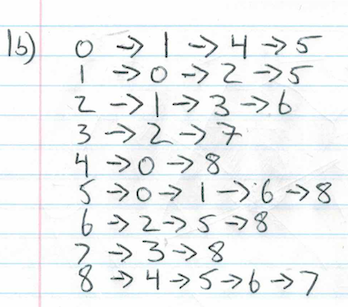 1b) 0 → 1 → 4 → 5
1 → 0 → 2 → 5
2 → 1 → 3 → 6
3 → 2 → 7
4 → 0 → 8
5 → 0 → 1 → 6 → 8
6 → 2 → 5 → 8
7 → 3 → 8
8 → 4 → 5 → 6 → 7